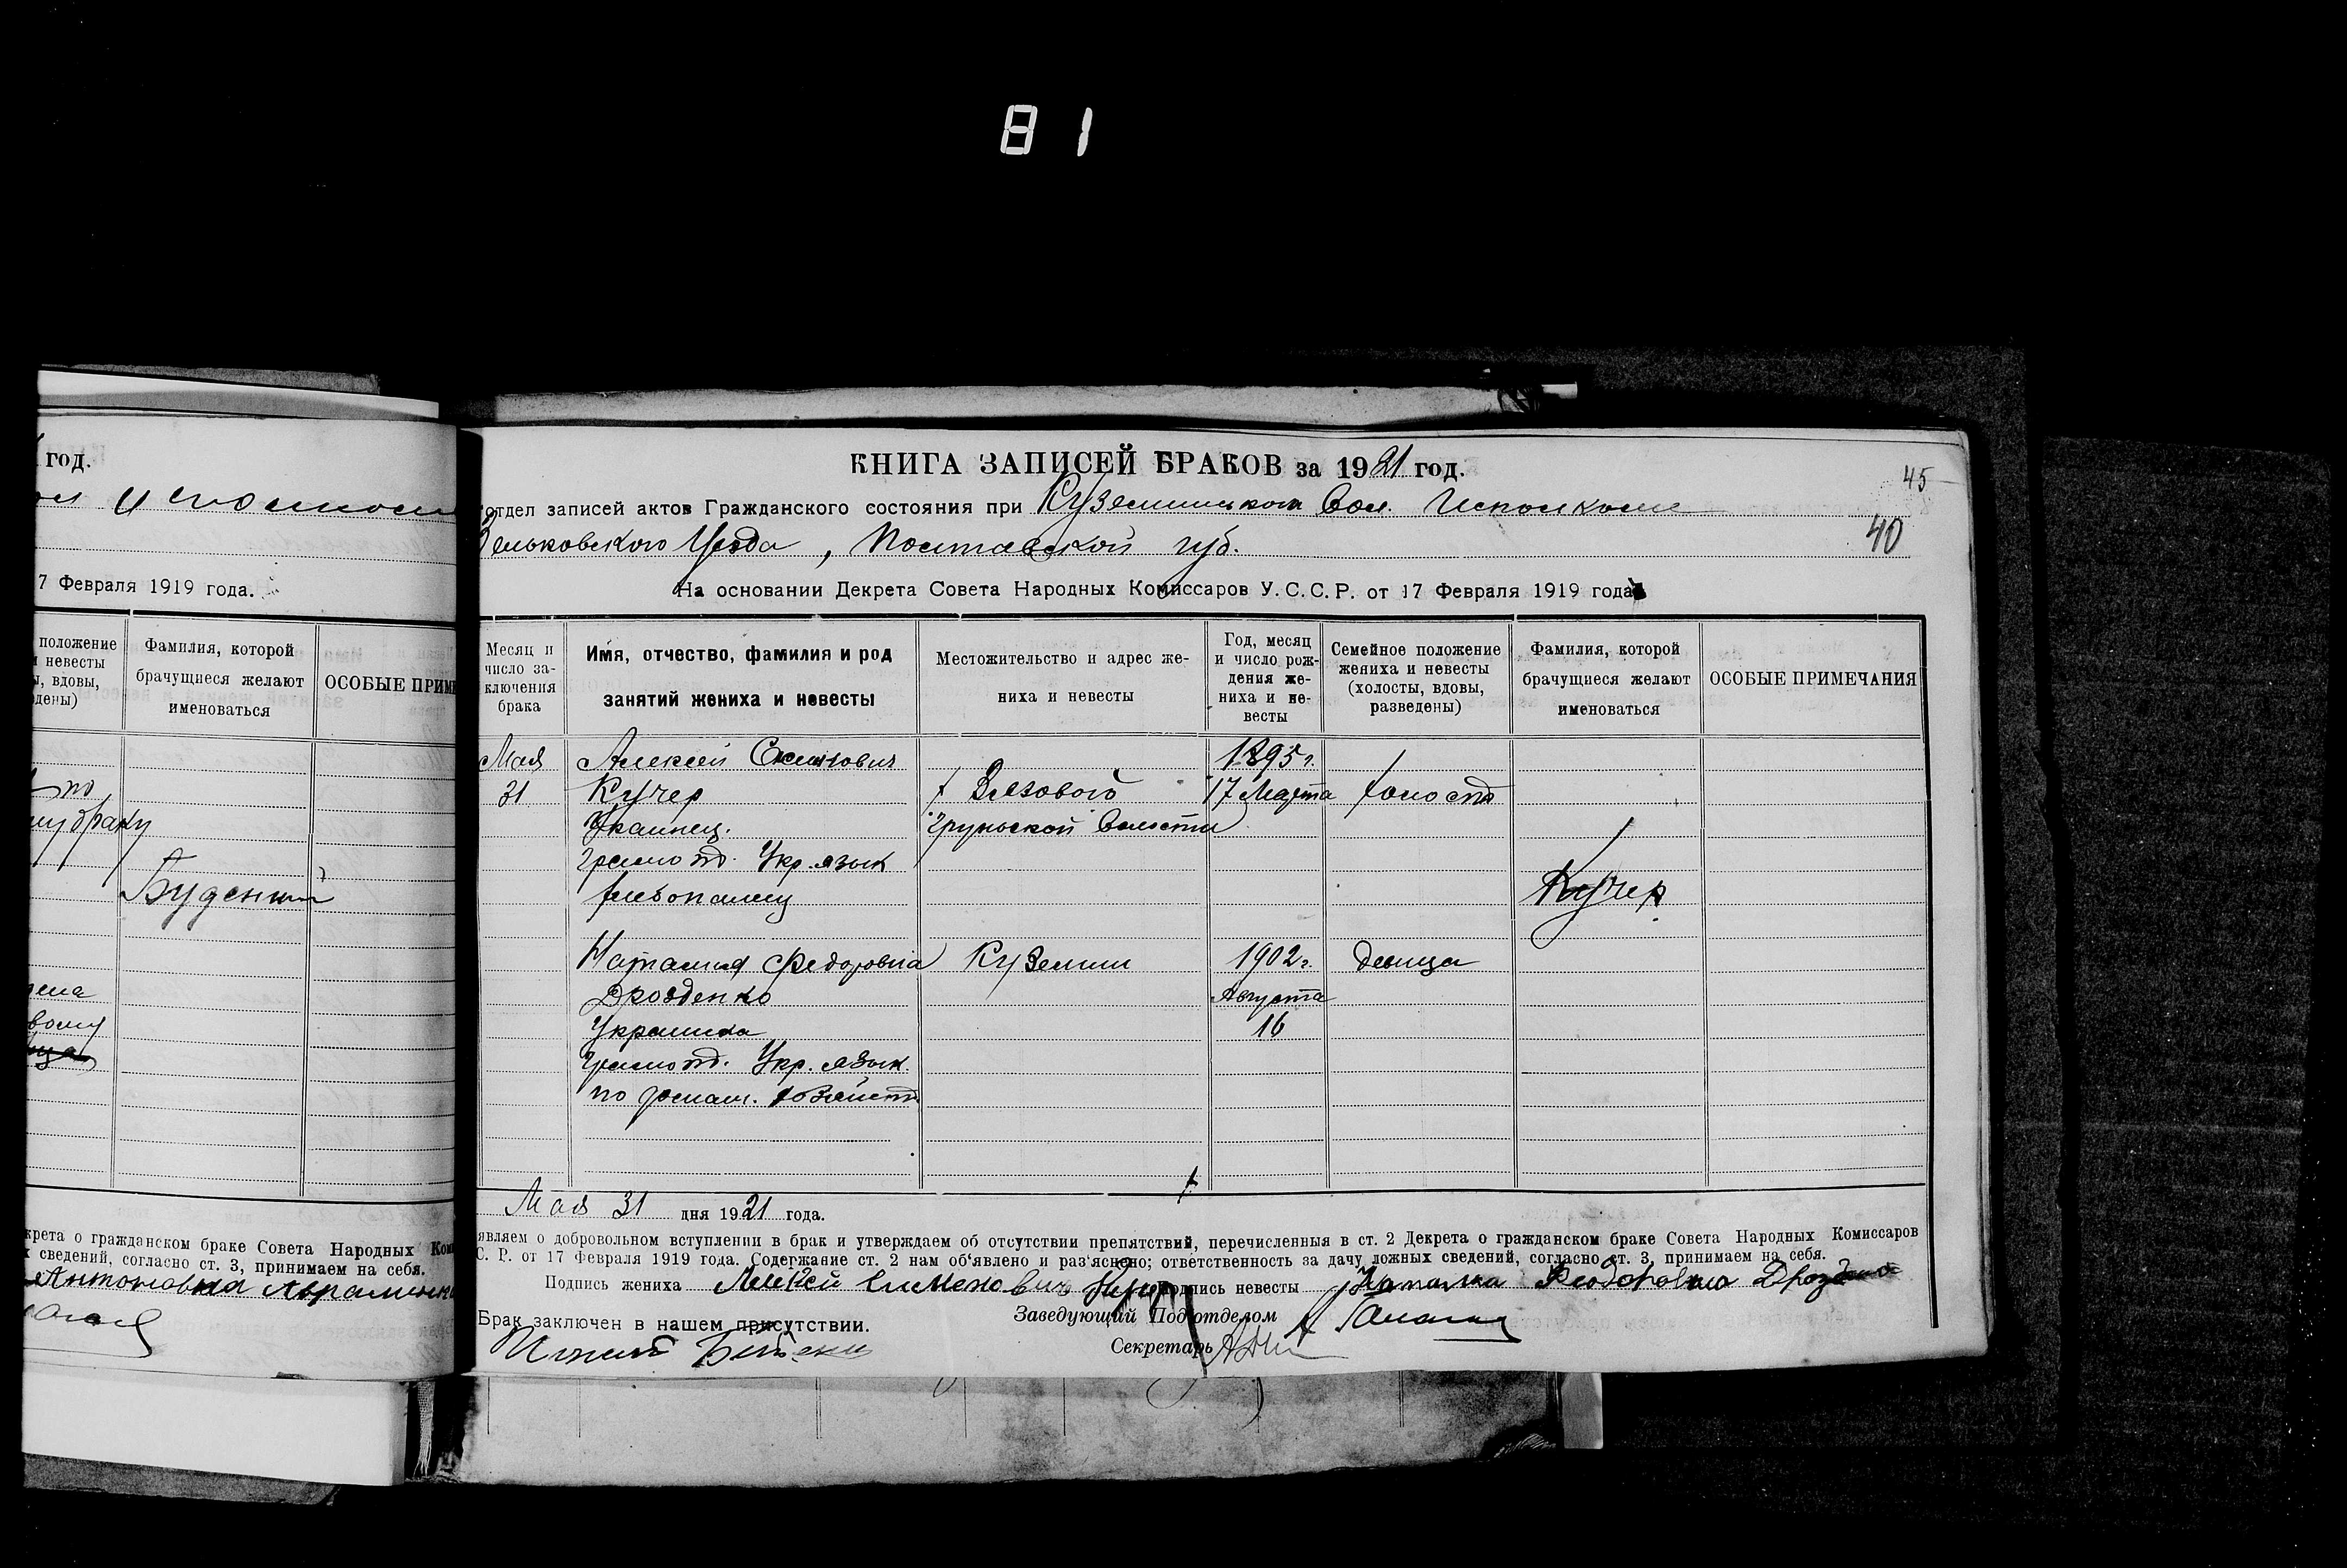 81
год.
7 Февраля 1919 года.
положение
невесты
вдовы,
Фамилия, которой
брачущиеся желают
именоваться
ОСОБЫЕ ПРИМЕ
по
браку
Буденный
крета о гражданском браке Совета Народных Ком
х сведений, согласно ст. 3, принимаем на себя.
Антоновна Авраменко
КНИГА ЗАПИСЕЙ БРАКОВ за 1921 год.
45
отдел записей актов Гражданского состояния при Куземинском Вол. Исполкоме
40
Зеньковского Уезда, Полтавской губ.
На основании Декрета Совета Народных Комиссаров У.С.С.Р. от 17 Февраля 1919 года
Месяц и
число за-
ключения
брака
Имя, отчество, фамилия и род
занятий жениха и невесты
Местожительство и адрес же-
ниха и невесты
Год, месяц
и число рож-
дения же-
ниха и не-
весты
Семейное положение
жениха и невесты
(холосты, вдовы,
разведены)
Фамилия, которой
брачущиеся желают
именоваться
ОСОБЫЕ ПРИМЕЧАНИЯ
Мая Алексей 1895 г.
31 Кучер х Вязового 17 Марта холост
Украинец. Груньской Волости
грамотн. Укр. язык
хлебопашец Кучер
Наталия Федоровна Куземин 1902 г. девица
Дрозденко Августа
Украинка 16
грамотн. Укр. язык.
по домаш. хозяйств
Мая 31 дня 1921 года.
являем о добровольном вступлении в брак и утверждаем об отсутствии препятствий, перечисленных в ст. 2 Декрета о гражданском браке Совета Народных Комиссаров
С. Р. от 17 Февраля 1919 года. Содержание ст. 2 нам об'явлено и раз'яснено; ответственность за дачу ложных сведений, согласно ст. 3, принимаем на себя.
Подпись жениха Алексей Семенович Кучер Подпись невесты Наталка Феодоровна
Брак заключен в нашем присутствии.
Заведующий Подотделом
Секретарь